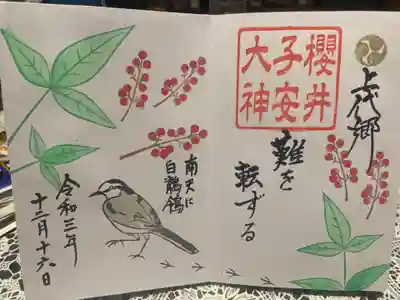 上代郷
櫻井
子安
大神
難を
転ずる
南天に
白鶺鴒
令和三年
十二月十六日